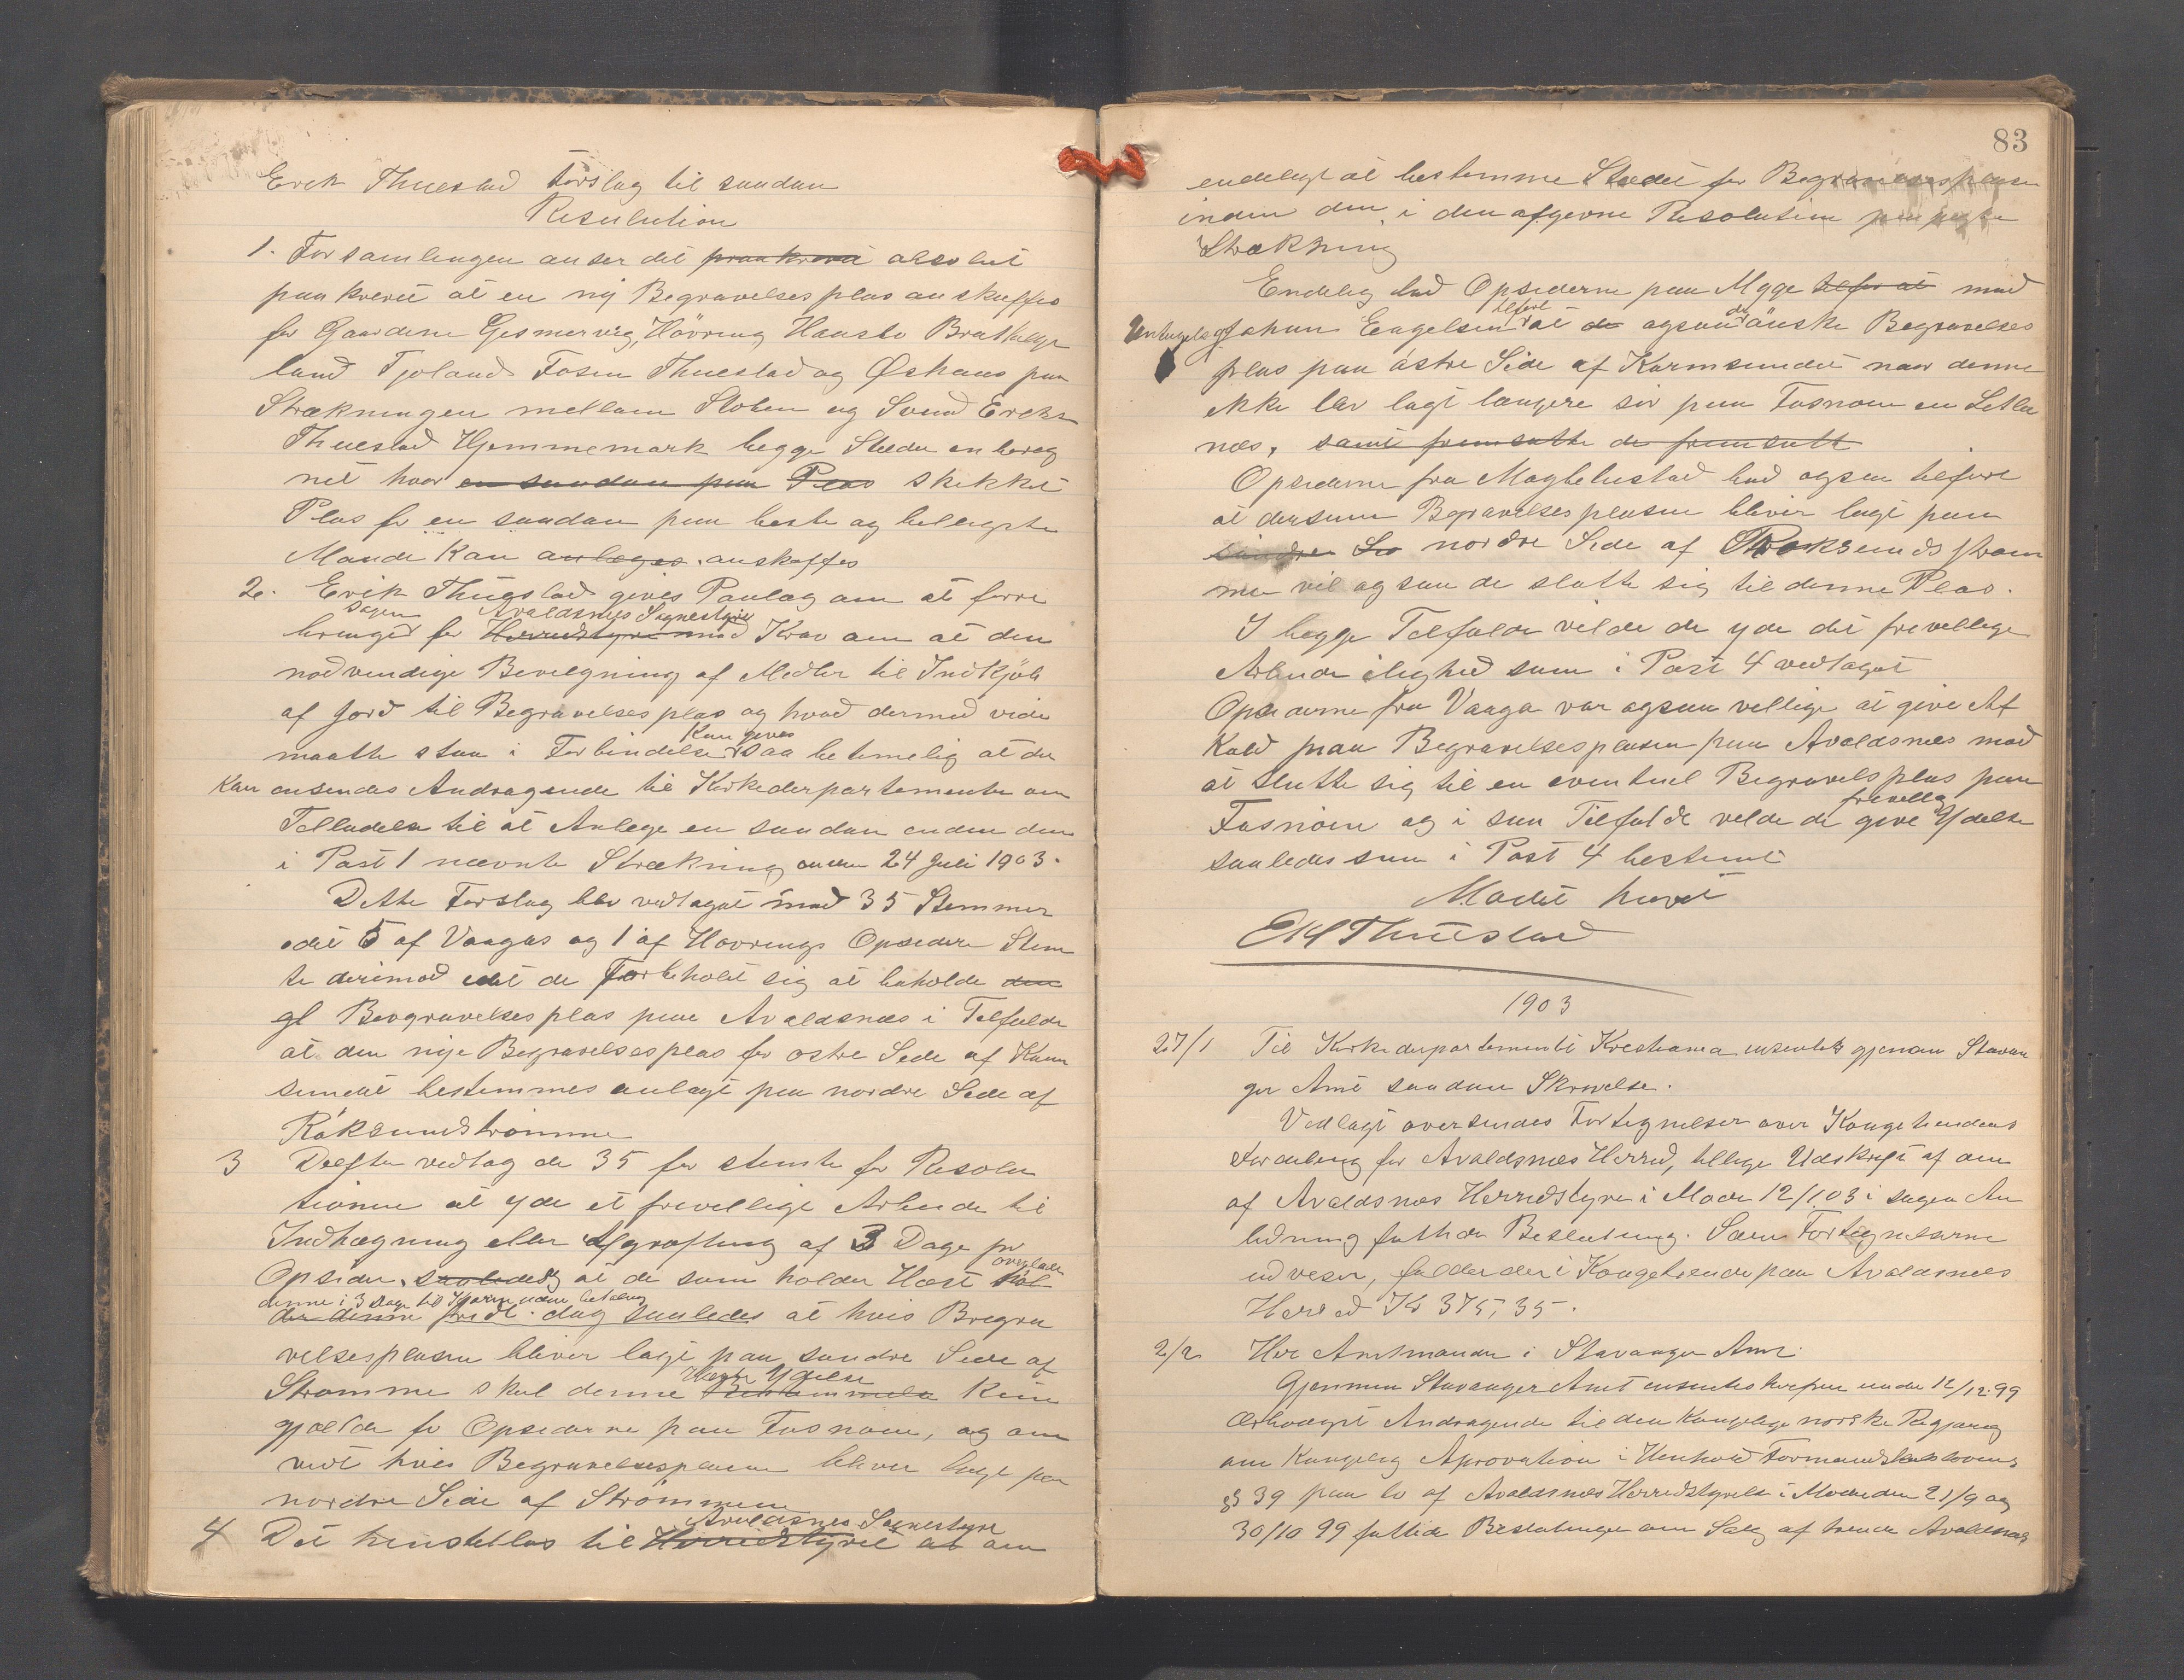 Erik Thuestad Forslag til saadan
Resulution
1. Forsamlingen anser det paakrevet absolut
paakrevet at en ny Begravelsesplas anskaffes
for Gaardene Gismervig, Hövring Hausto Brathelge
land Fjoland Fosen Thuestad og Øshaus paa
Strækningen mellem Stolen og Svend Eriks
Thuestad Hjemmemark begge Steder en bereg
net hvor en saadan paa Plas skikket
Plas for en saadan paa beste og beleiligste
Maade kan anlæges. anskaffes
2. Erik Thuestad gives Paalæg om at ferre
Sagen Avaldsnes Sognestyre
bringe for Herredstyre med Krav om at den
nødvendige Bevilgning af Midler til Indkjöb
af Jord til Begravelsesplas og hvad dermed vide
Kan gives
maatte staa i Forbindelse saa betimelig at der
kan ensendes Andragende til Kirkederpartemente om
Telladelse til at Anlege en saadan enden den
i Post 1 nævnte Strækning enden 24 Juli 1903.
Dette Forslag blev vedtaget mod 35 Stemmer
idet 5 af Vaagas og 1 af Hovrings Opsidere Stem
te derimod idet de forbeholdt sig at beholde den
gl Bevgravelsesplas paa Avaldsnes i Telfelde
at den nye Begravelsesplas for ostre Side af Karm
sundet bestemmes anlagt paa nordre Side af
Röksundstrømme
3 Derefter vedtog de 35 for stemte for Resolu
tionen at yde et frivellige Arbeide til
Indhegning eller Afgrøftning af 3 Dage pr
overlader
Opsider, saaledes at de som holder Hest
denne i 3 Dage til Kjøring uden betaling
der denne dag saaledes at hvis Begra
velsesplasen bliver lagt paa søndre Side af
Ydelse
Stromme skal denne Bestemmelse kun
gjælde for Opsiderne paa Fosnøen, og om
vedt hvis Begravelsesplasen bliver lagt paa
nordre Side af Strømmen
Avaldsnes Sognestyre
4 Det henstelles til Herredstyret at om
83
endeligt at bestemme Stedet for Begravelsesplasen
inden den i den afgevne Resolution paapegte
Strækning
Endelig lod Opsiderne paa Mygge tilføre at med
tilført de
Undtagelse af Johan Engelsen at de ogsaa önske Begravelses
plas paa østre Side af Karmsundet naar denne
ikke blev lagt længere sør paa Fosnøen en Letla
nes, samt fremsatte de fremsatt
Opsiderne fra Magbelestad lod ogsaa tilføre
at dersum Begravelsesplasen bliver lagt paa
søndre Si nordre Side af Röksunds strøm
men vil ogsaa de slutte sig til denne Plas.
I begge Telfelde vilde de yde det frevellige
Arbeide i lighed som i Post 4 vedtaget
Opsiderne fra Vaaga var ogsaa vellige at give Af
kald paa Begravelsesplasen paa Avaldsnes mod
at slutte sig til en eventuel Begravelsplas paa
frivellig
Fosnøen og i saa Tilfælde velde de give Ydelse
saaledes som i Post 4 bestemt
Mødet hævet
EH Thuestad
1903
27/1 Til Kirkedepartementet Kristiania ensendtes gjenom Stavan
ger Amt saadan Skrivelse.
Vedlagt oversendes Fortegnelser over Kongetiendens
Fordeling for Avaldsnes Herred, tillige Udskrift af en
af Avaldsnes Herredstyre i Møde 12/1.03 i sagens An
ledning fatthede Beslutning. Som Fortegnelserne
udveser, falder der i Kongetiende paa Avaldsnes
Herred Kr 375,35.
2/2 Herr Amtmanden i Stavanger Amt.
Gjennem Stavanger Amt ensentes herfra under 12/12.99
Ærbødigst Andragende til den Kongelige norske Regjering
om Kongelig Aprovation i Henhold Formandskabslovens
§ 39 paa to af Avaldsnes Herredstyrelse i Møderne 21/9 og
30/10 99 fattede Beslutninger om Salg af tvende Avaldsnes